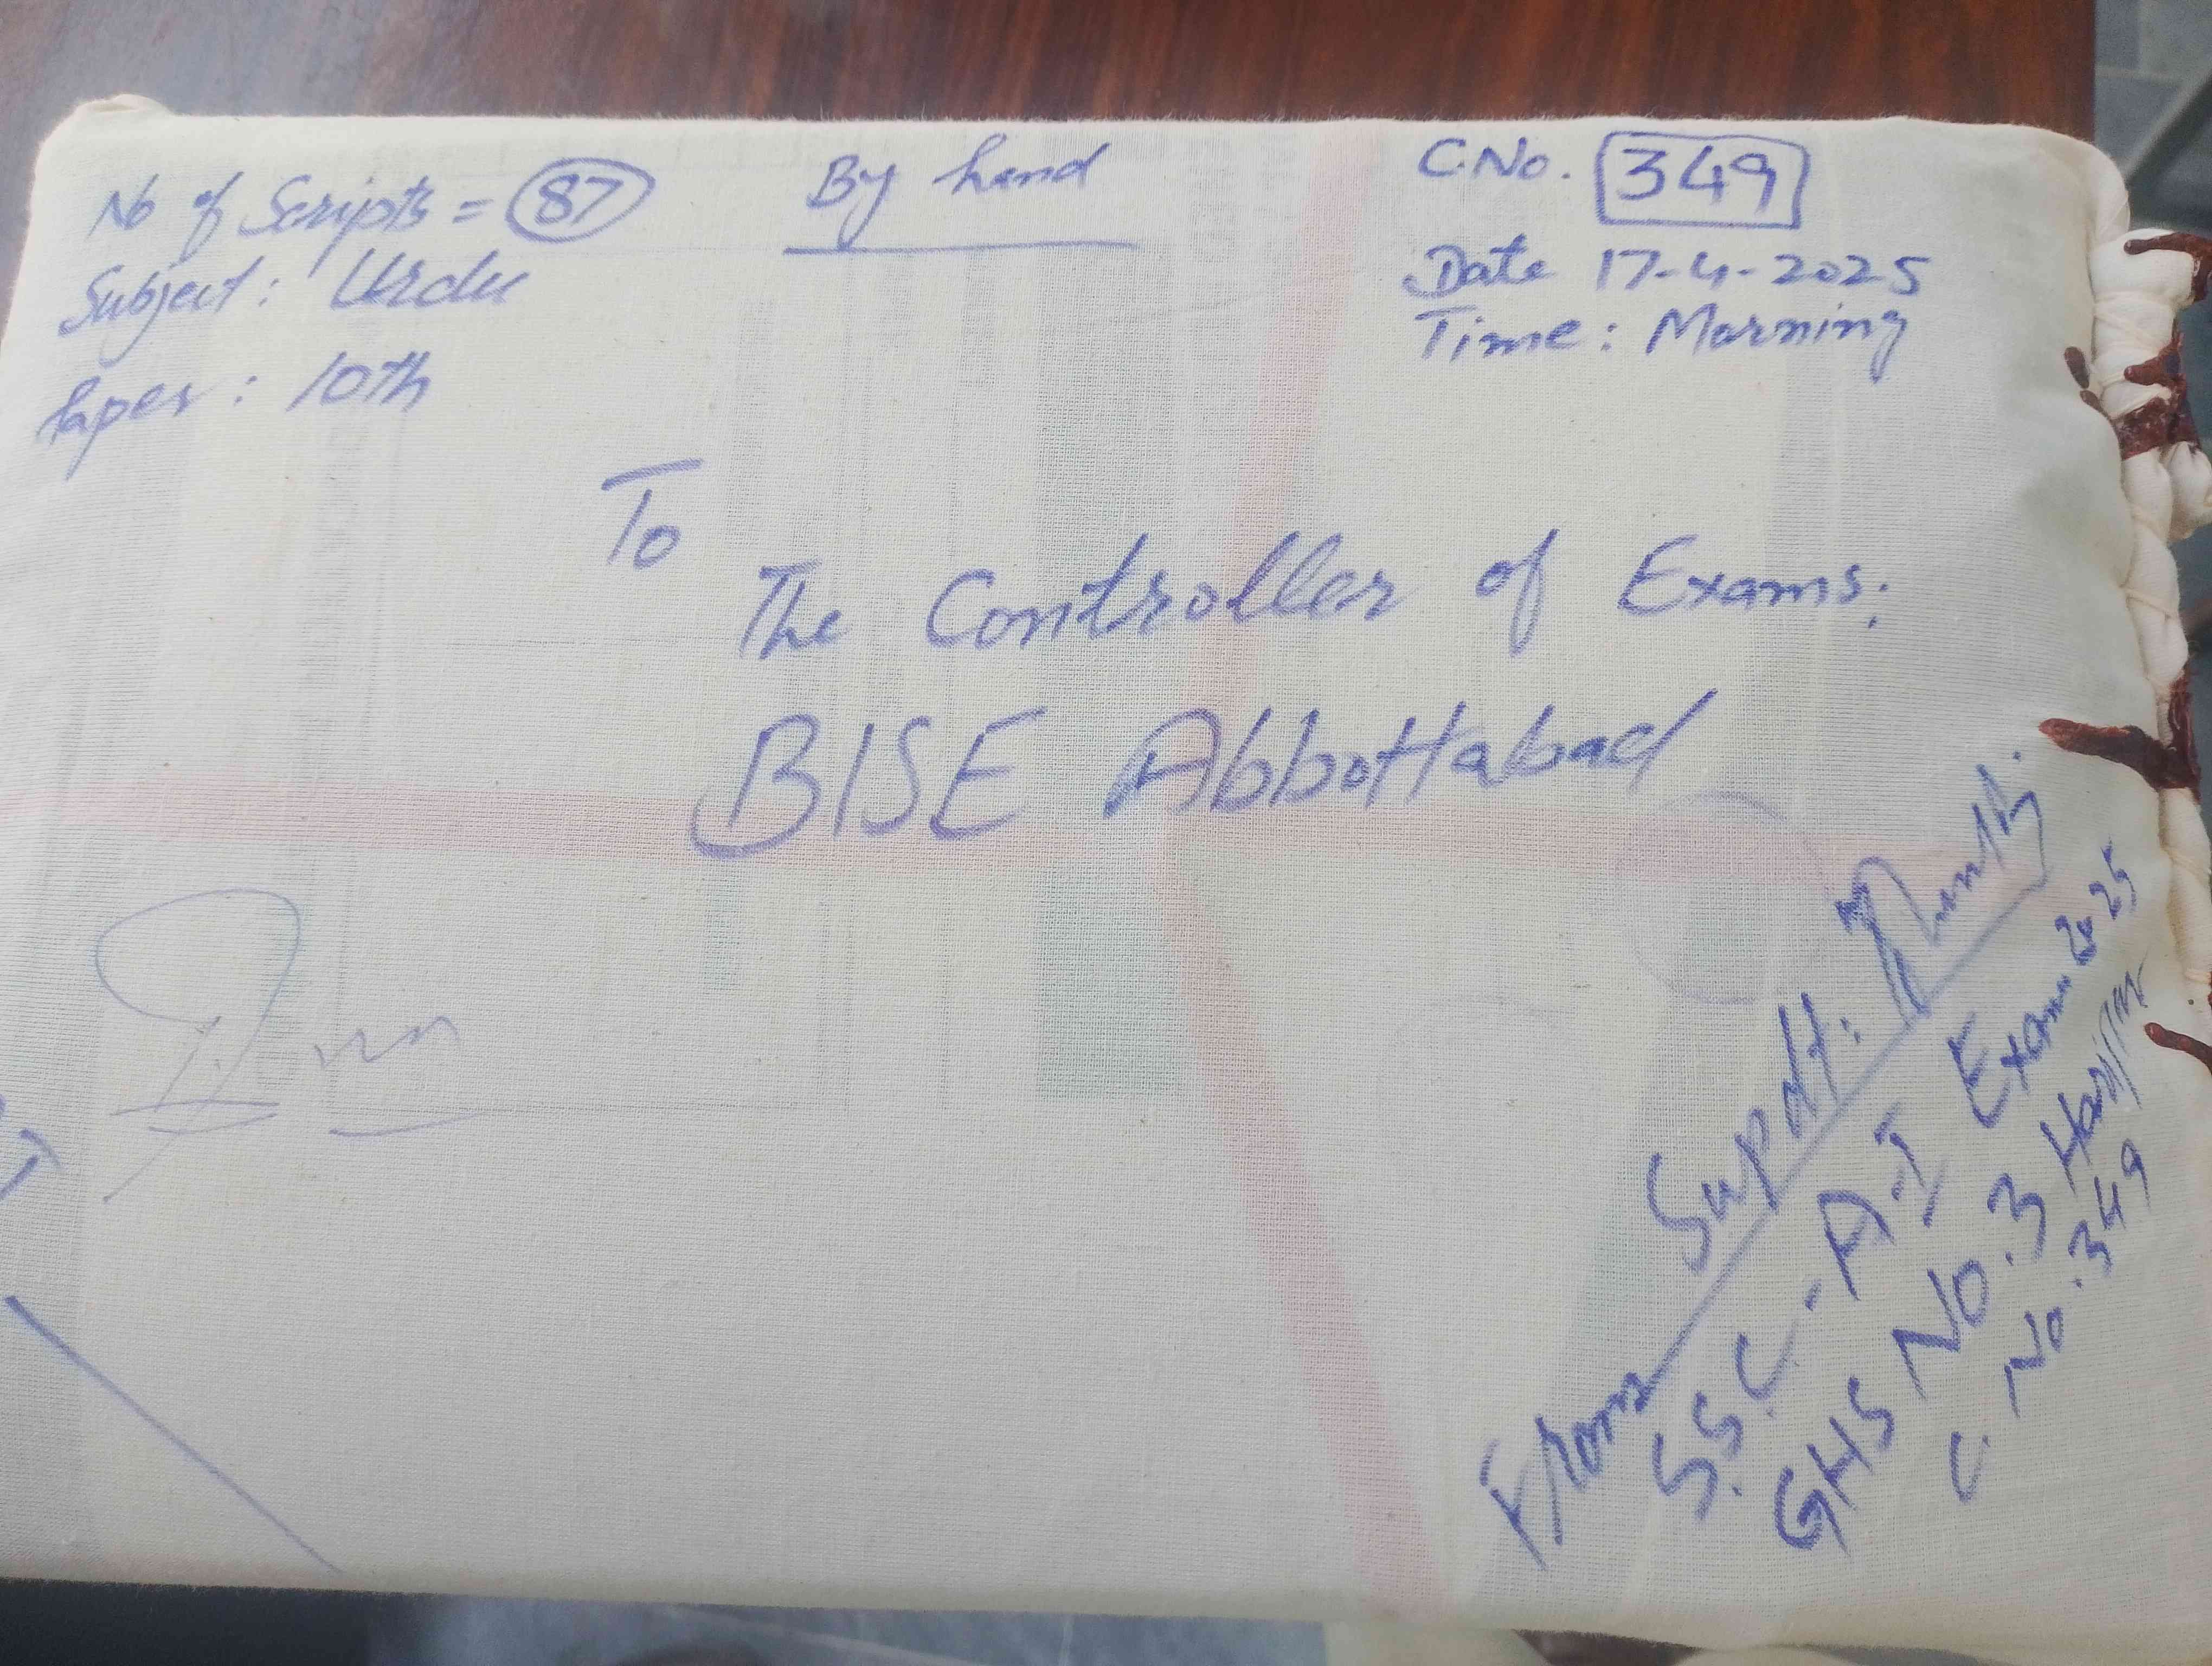 No of Scripts = 87
By hand
C.No. 349
Subject: Urdu
Date 17-4-2025
Paper: 10th
Time: Morning
To
The Controller of Exams:
BISE Abbottabad
From Supdt:
S.S.C-A-I Exam 2025
GHS No.3 Haripur
C. No.349